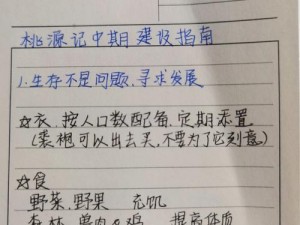 桃源记中期建设指南
1.生存不是问题,寻求发展
☆衣:按人口数配备,定期添置
(裘袍可以出去买,不要为了它刻意)
☆食
野菜、野果 充饥
兽肉 鸡 提高体质